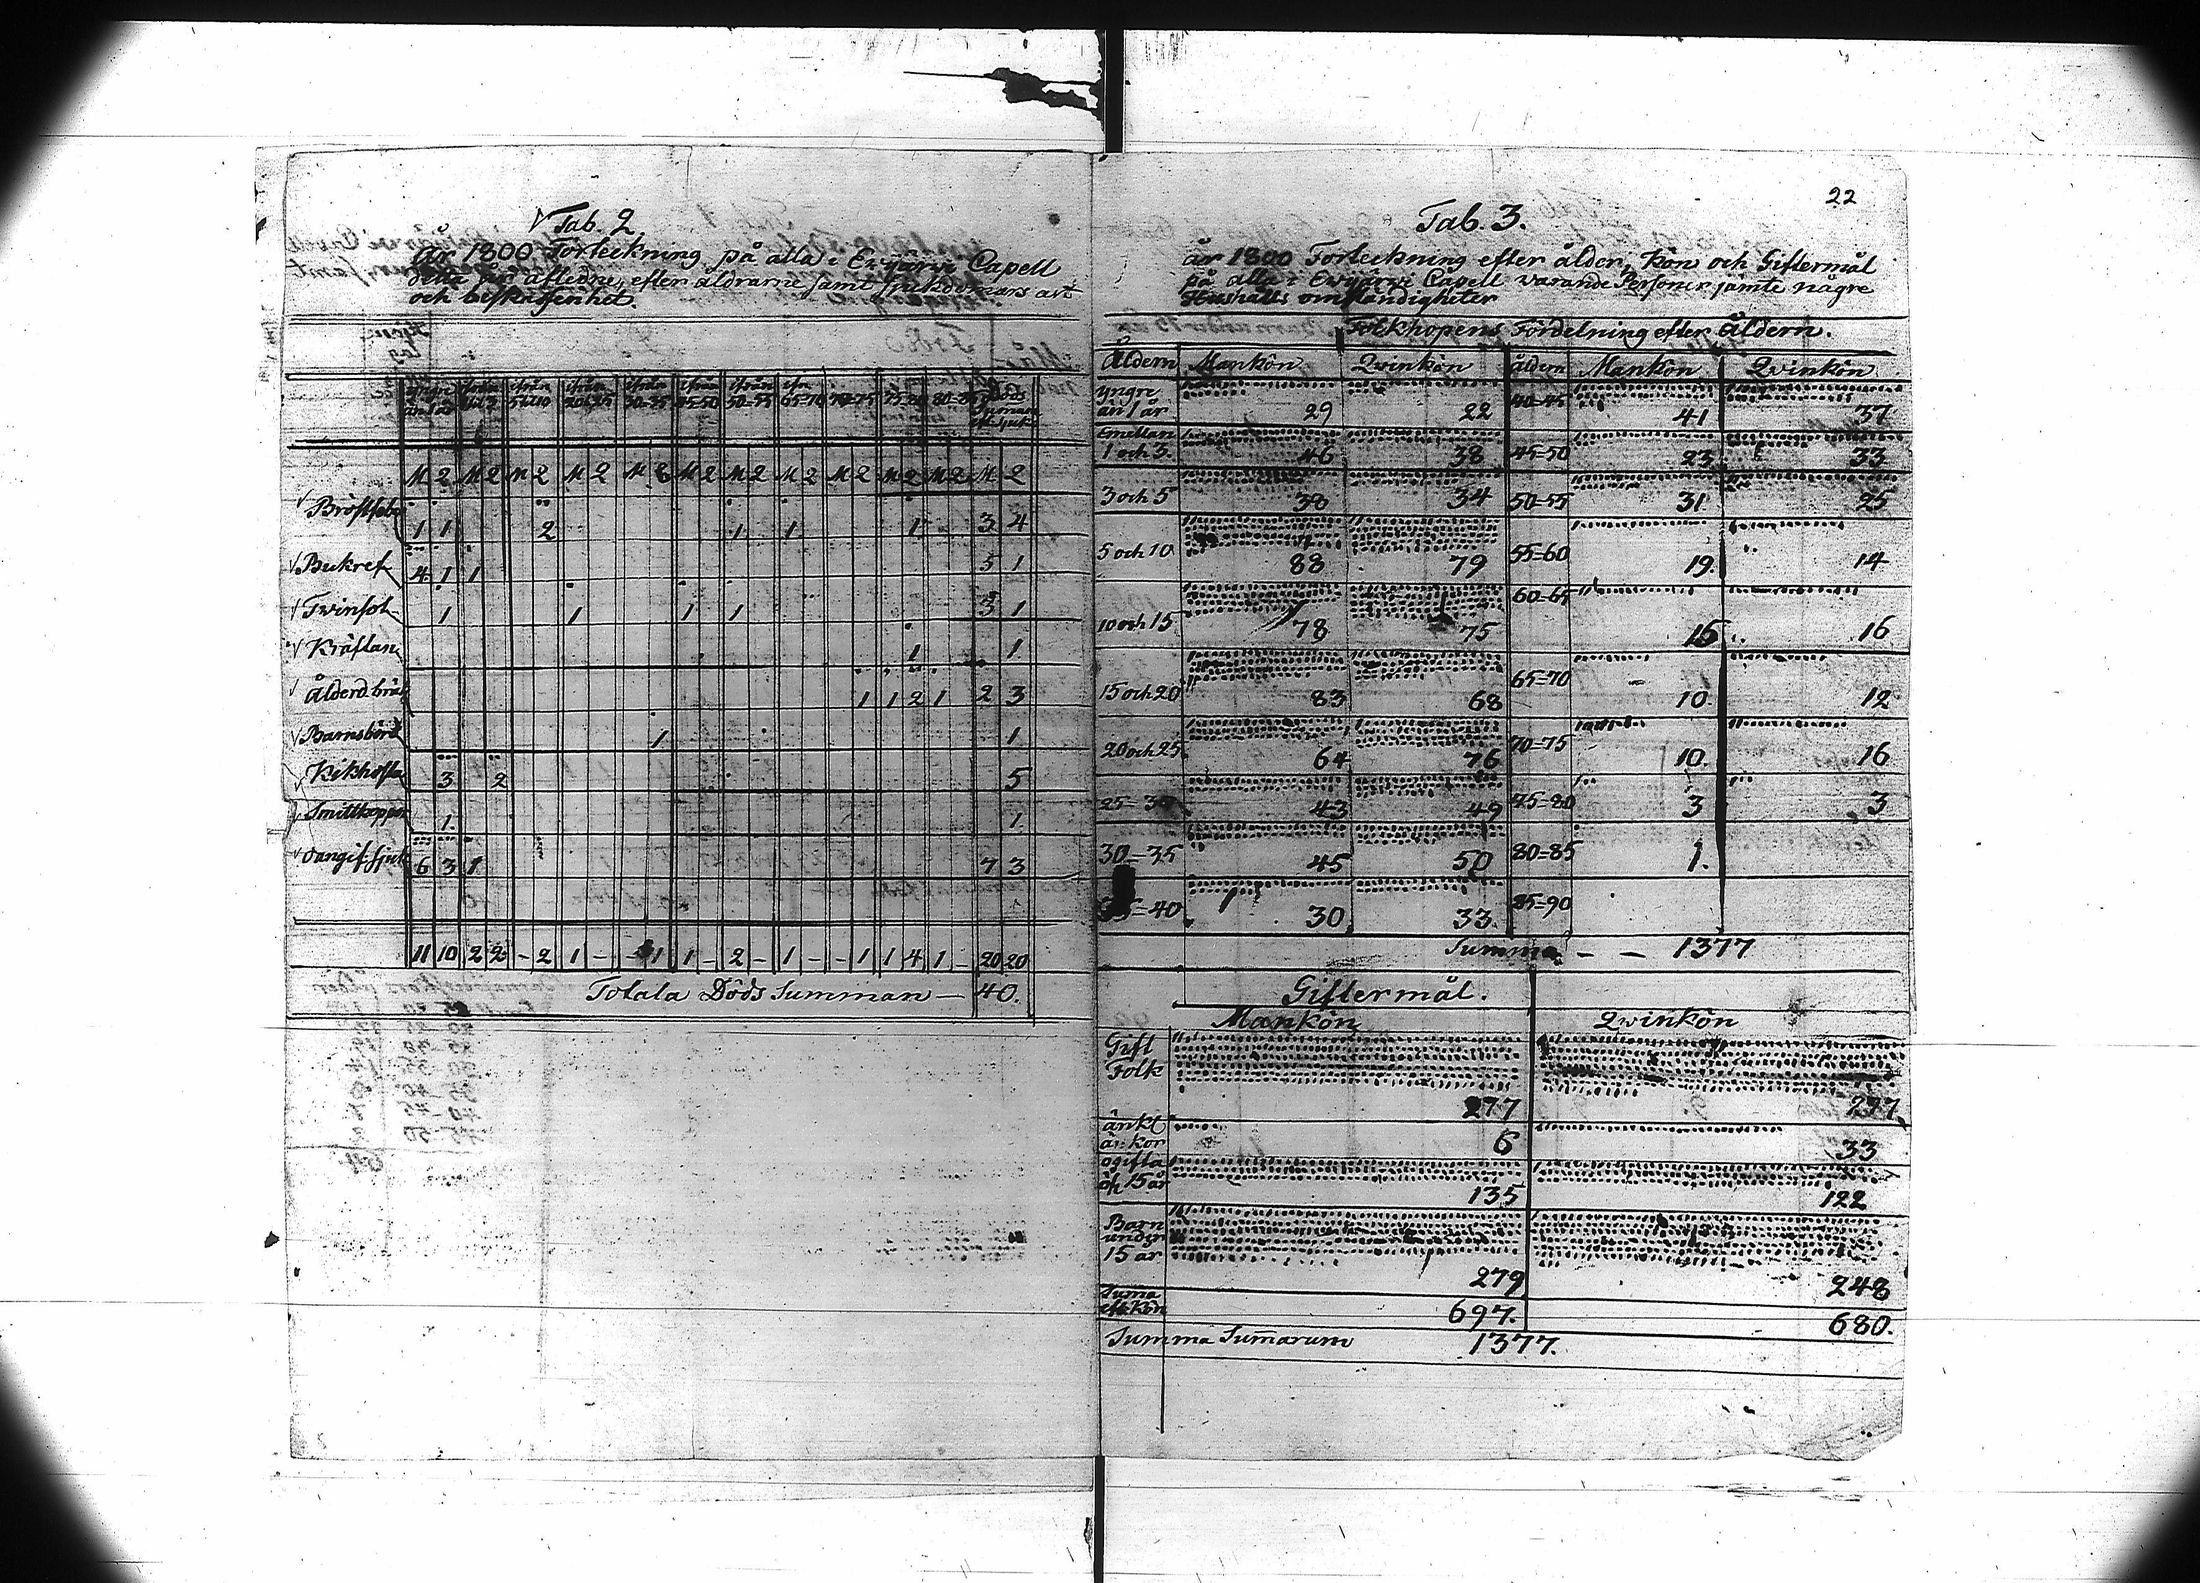 Tab. 2.
år 1800 Förteckning på alla i Ewijärvi Capell
detta år afledne, efter åldrarne samt sjukdomars art
och beskaffenhet.
yngre än 1 år ifrån 1 til 3 ifrån 5 til 10 ifrån 20 til 25 ifrån 30-35 ifrån 45-50 ifrån 50-55 ifrn 65-70 70-75 75-80 80-85
M Q M Q M Q M Q M Q M Q M Q M Q M Q M Q M Q M Q
Bröstfeber 1 1 2 1 1 1 3 4
Bukref 4 1 1 5 1
Twinsot 1 1 1 1 3 1
Kräftan 1 1
Ålderd. bräk 1 1 2 1 2 3
Barnsbörd 1 1
Kikhosta 3 2 5
Smittkoppor 1. 1.
Oangif. sjuk 6 3 1 7 3
11 10 2 2 - 2 1 - - 1 1 - 2 - 1 - - 1 1 4 1 - 20 20
Totala Döds Summan — 40.
22
Tab. 3.
år 1800 Forteckning efter ålder, Kön och Giftermål
på alla i Ewijärvi Capell varande Personer jämte några
Hushålls omständigheter
Folkhopens Fördelning efter Åldern.
Åldern Mankön Qvinkön Åldern Mankön Qvinkön
yngre än 1 år 29 22 40-45 41 37
Emellan 1 och 3. 46 38 45-50 23 33
3 och 5 38 34 50-55 31 25
5 och 10 88 79 55=60 19. 14
10 och 15 78 75 60=65 15 16
15 och 20 83 68 65=70 10. 12
20 och 25 64 76 70=75 10. 16
25=30 43 49 75-80 3 3
30=35 45 50 80=85 1.
35=40 30 33. 85=90
Summa — — 1377
Giftermål.
Mankön Qvinkön
Gift Folk 277 277
änkl änkor 6 33
ogifta öf. 15 år 135 122
Barn under 15 år 279 248
Suma eft. Kön 697. 680.
Summa Sumarum 1377.